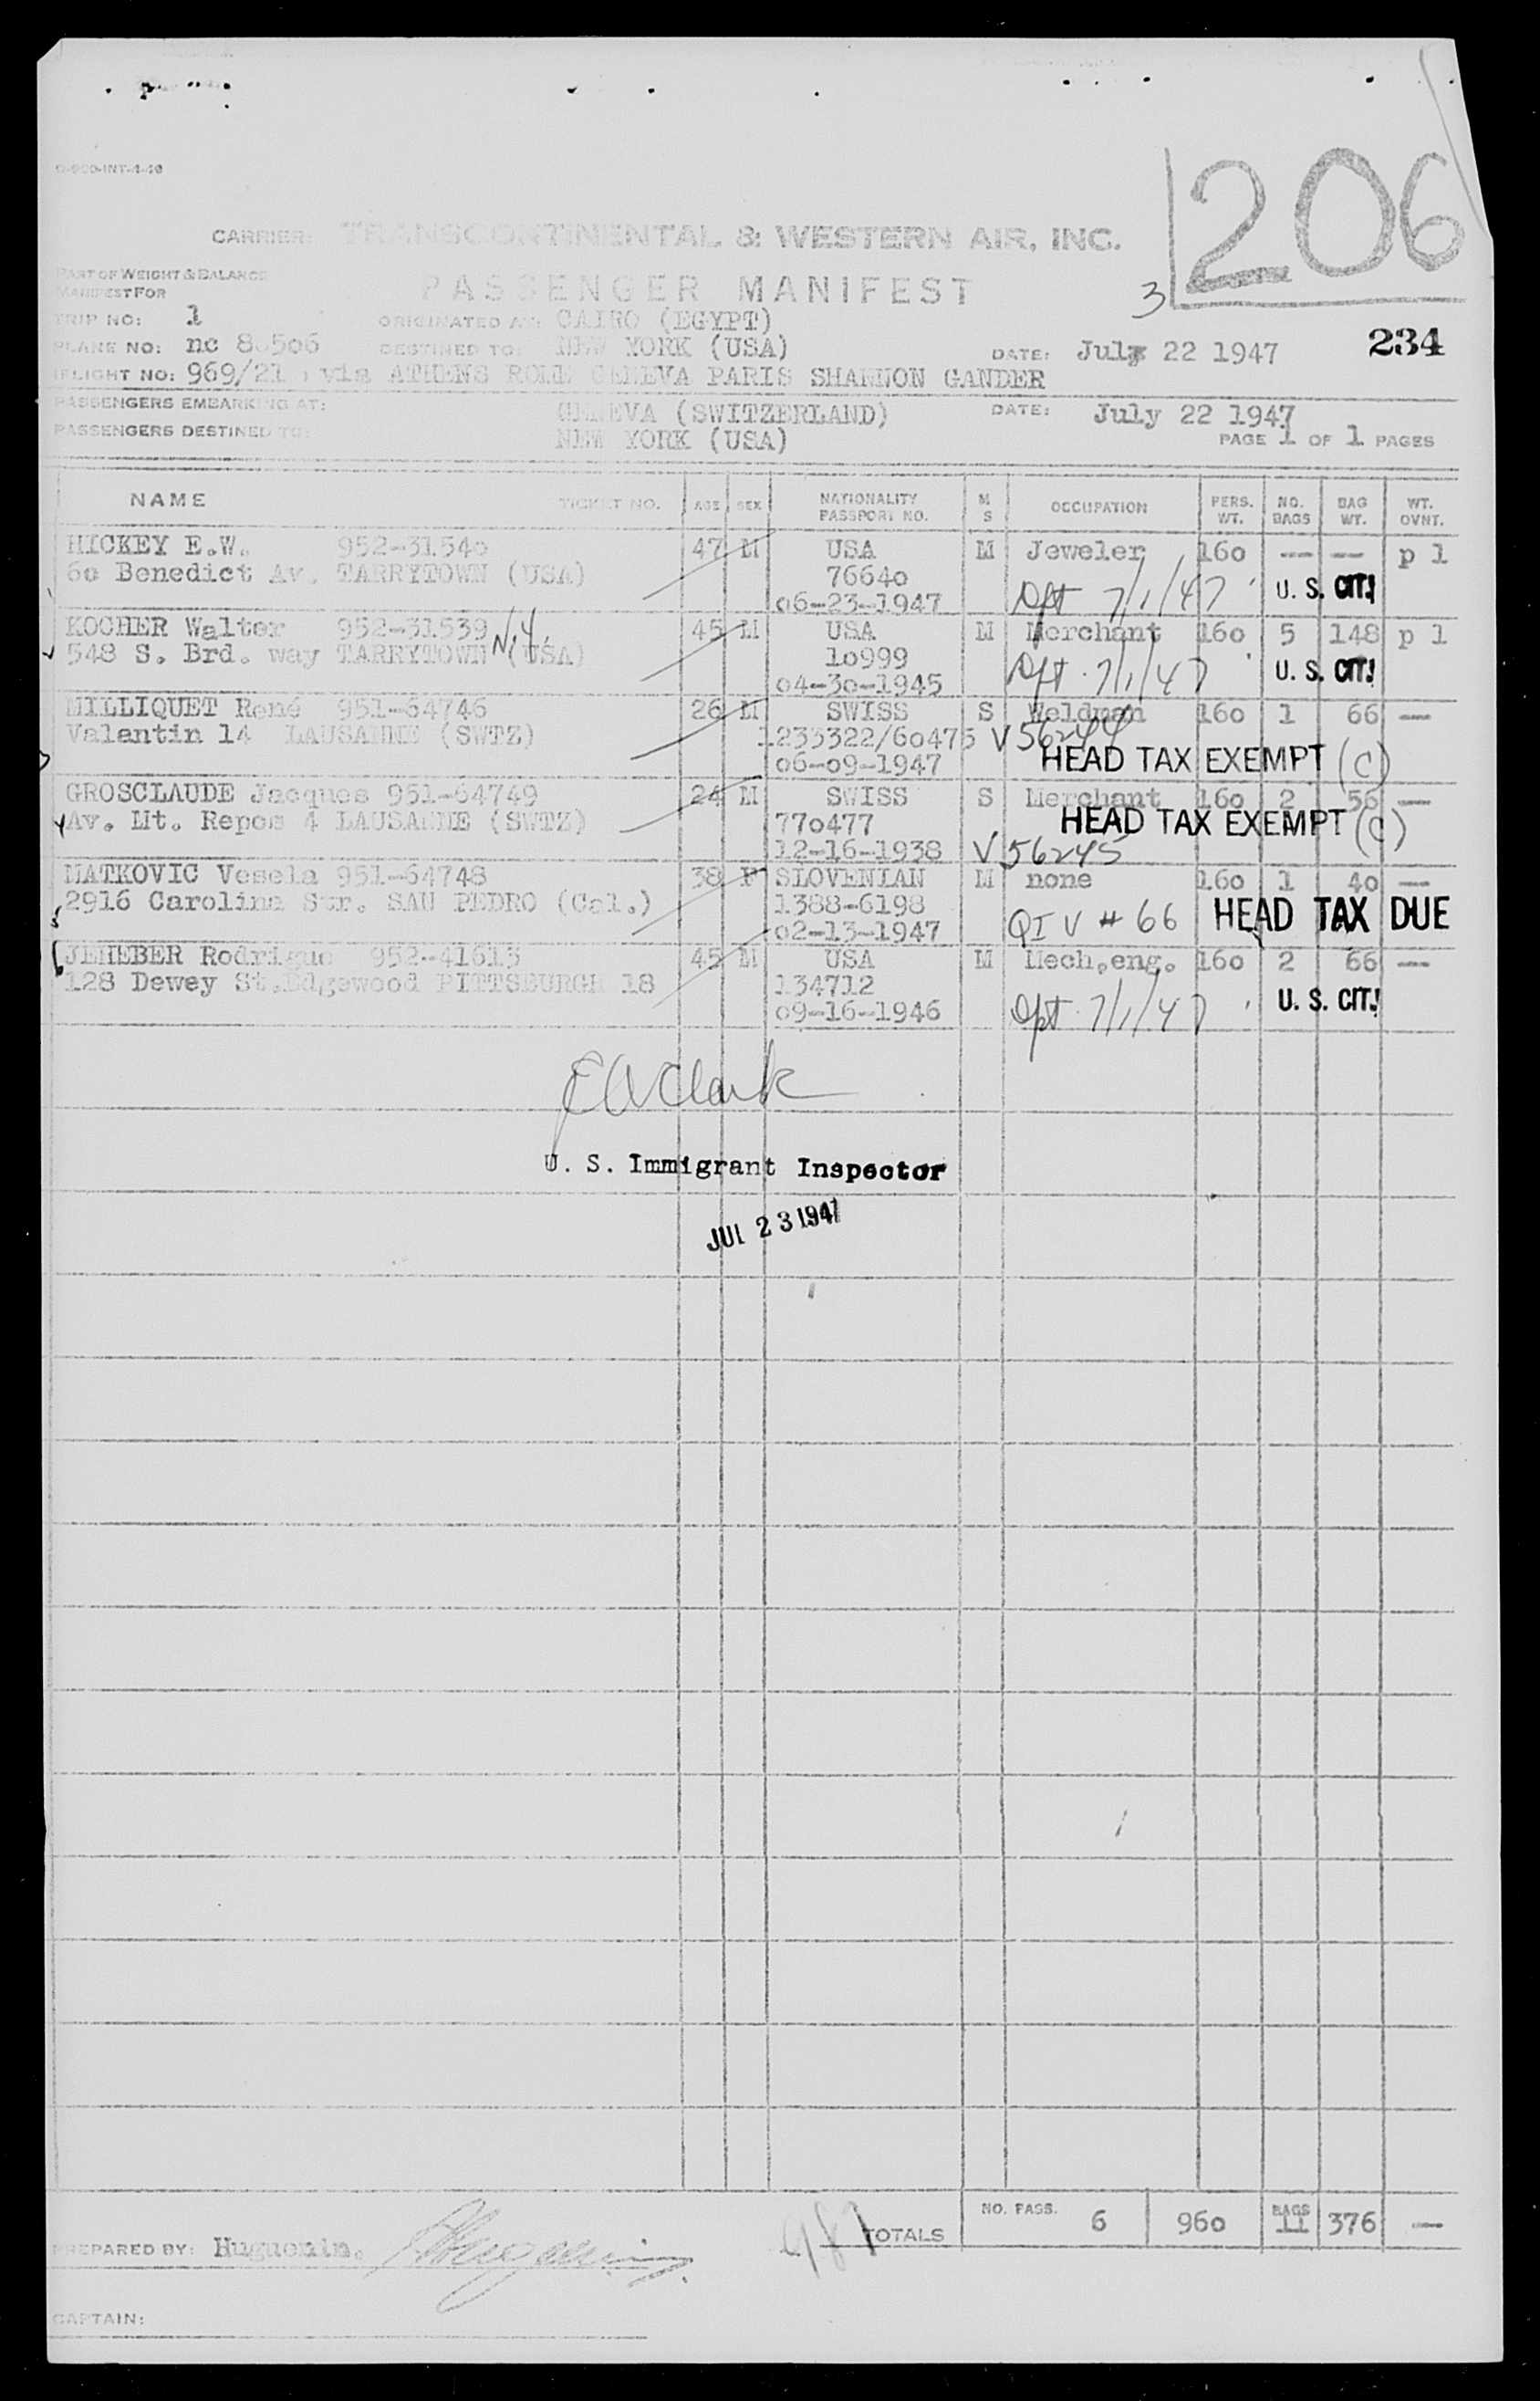 O-900-INT-4-46
206
CARRIER: TRANSCONTINENTAL & WESTERN AIR, INC.
PART OF WEIGHT & BALANCE
MANIFEST FOR
PASSENGER MANIFEST
3
TRIP NO: 1
ORIGINATED AT: CAIRO (EGYPT)
234
PLANE NO: nc
DESTINED TO: NEW YORK (USA)
DATE: July 22 1947
FLIGHT NO: 969/21 via ATHENS ROME GENEVA PARIS SHANNON GANDER
PASSENGERS EMBARKING AT: GENEVA (SWITZERLAND)
DATE: July 22 1947
PASSENGERS DESTINED TO: NEW YORK (USA)
PAGE 1 OF 1 PAGES
NAME TICKET NO. AGE SEX NATIONALITY PASSPORT NO. M S OCCUPATION PERS. WT. NO. BAGS BAG WT. WT. OVNT.
HICKEY E.W. 952-31540 47 M USA M Jeweler 160 -- -- p 1
60 Benedict Av. TARRYTOWN (USA) 76640
06-23-1947 Dpt 7/1/47 U. S. CIT.
KOCHER Walter 952-31539 45 M USA M Merchant 160 5 148 p 1
548 S. Brd. way TARRYTOWN N.Y. (USA) 10999
04-30-1945 Dpt. 7/1/47 U. S. CIT.
MILLIQUET René 951-64746 26 M SWISS S Weldman 160 1 66 --
Valentin 14 LAUSANNE (SWTZ) 1233322/60475 V 56244
06-09-1947 HEAD TAX EXEMPT (C)
GROSCLAUDE Jacques 951-64749 24 M SWISS S Merchant 160 2 56 --
Av. Mt. Repos 4 LAUSANNE (SWTZ) 770477 HEAD TAX EXEMPT (C)
12-16-1938 V 56245
MATKOVIC Vesela 951-64748 38 F SLOVENIAN M none 160 1 40 --
2916 Carolina Str. SAN PEDRO (Cal.) 1388-6198
02-13-1947 QI V # 66 HEAD TAX DUE
JEHEBER Rodrigue 952-41613 45 M USA M Mech.eng. 160 2 66 --
128 Dewey St. Edgewood PITTSBURGH 18 134712
09-16-1946 Dpt. 7/1/47 U. S. CIT.
E A Clark
U. S. Immigrant Inspector
JUL 23 1947
NO. PASS. 6 960 BAGS 11 376 --
TOTALS
PREPARED BY: Huguenin.
CAPTAIN: